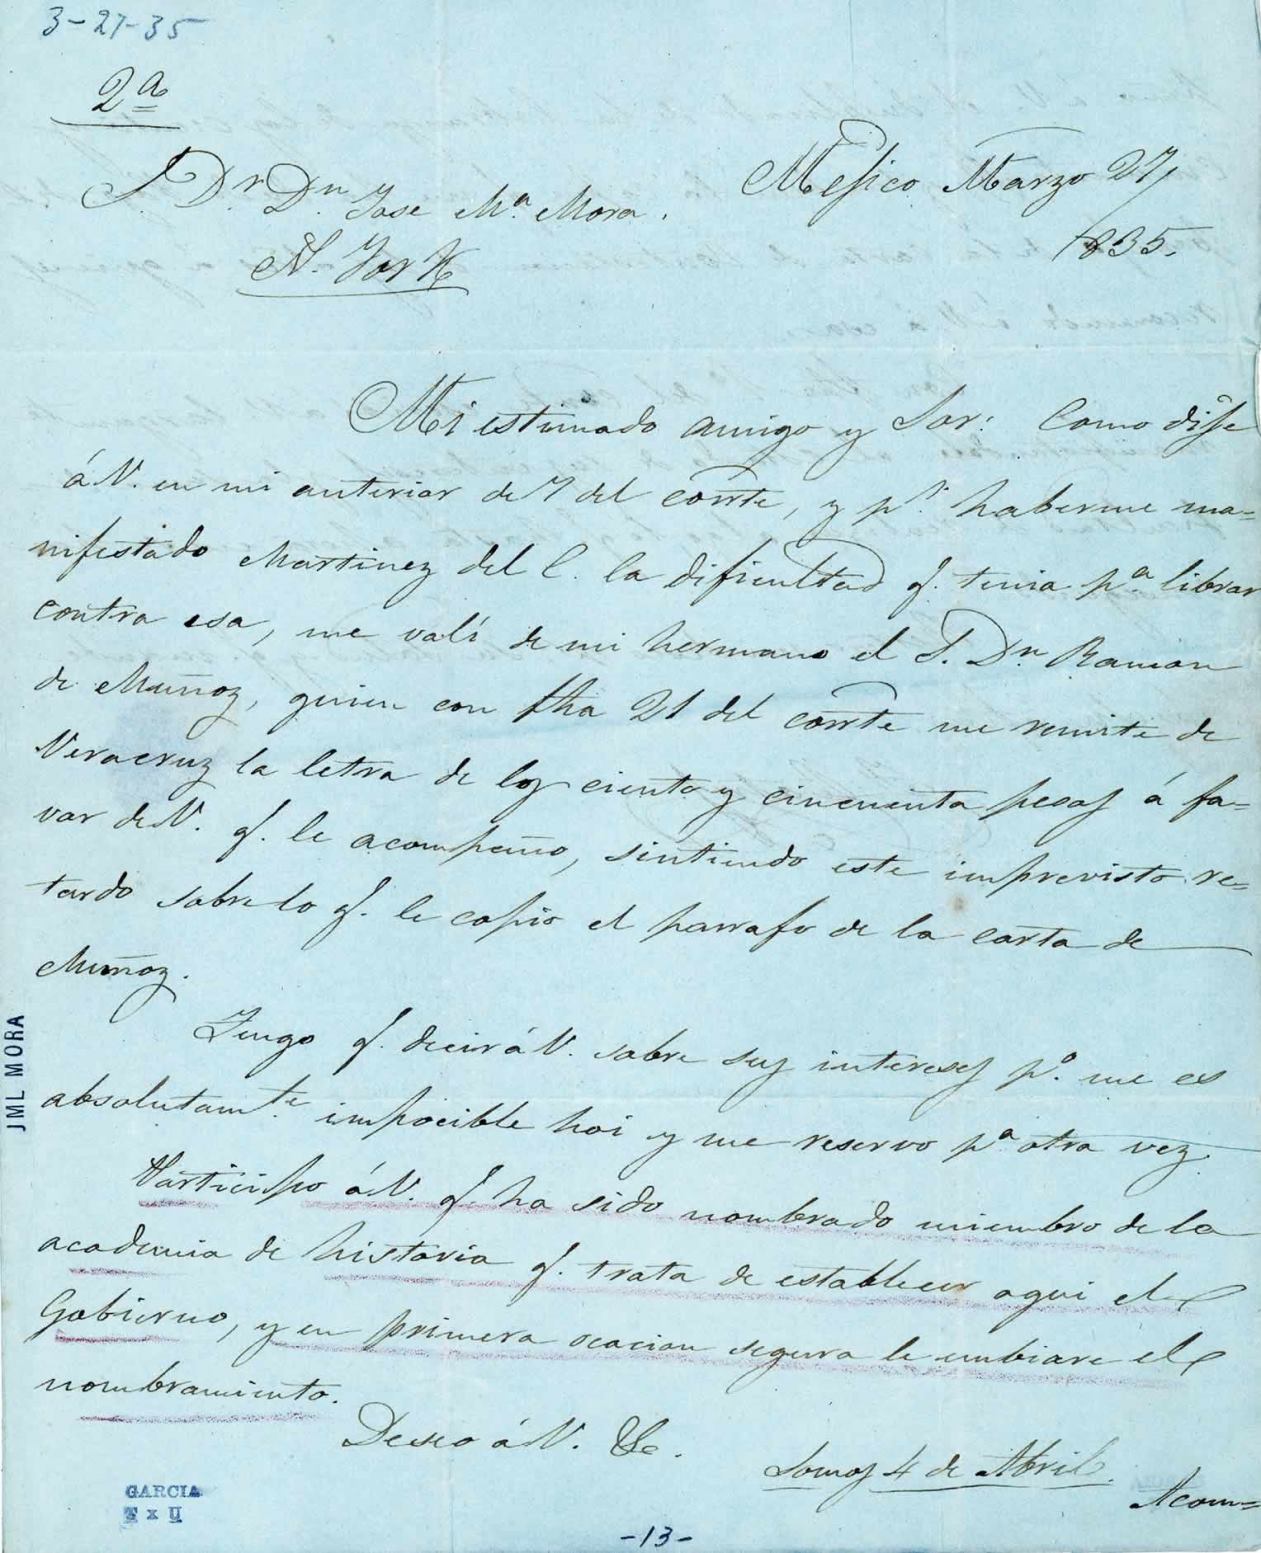 3-27-35
2ª
S. Dr. Dn. Jose Mª Mora.
N. York
Mejico Marzo 27,
1835.
Mi estimado amigo y Sor: Como dije
á V. en mi anterior de 7 del corrte, y pr. haberme ma=
nifestado Martinez del C. la dificultad q. tenia pª librar
contra esa, me valí de mi hermano el S. Dn. Ramon
de Muñoz, quien con fha 21 del corrte me remite de
Veracruz la letra de los ciento y cincuenta pesos á fa=
vor de V. q. le acompaño, sintiendo este imprevisto re=
tardo sobre lo q. le copio el parrafo de la carta de
Muñoz.
Tengo q. decir á V. sobre sus intereses pº. me es
absolutamte. impocible hoi y me reservo pª otra vez.
Participo á V. q. ha sido nombrado miembro de la
academia de historia q. trata de establecer aqui el
Gobierno, y en primera ocacion segura le embiare el
nombramiento.
Deseo á V. &c.
Somos 4 de Abril.
Acom=
JML MORA
GARCIA
T x U
-13-